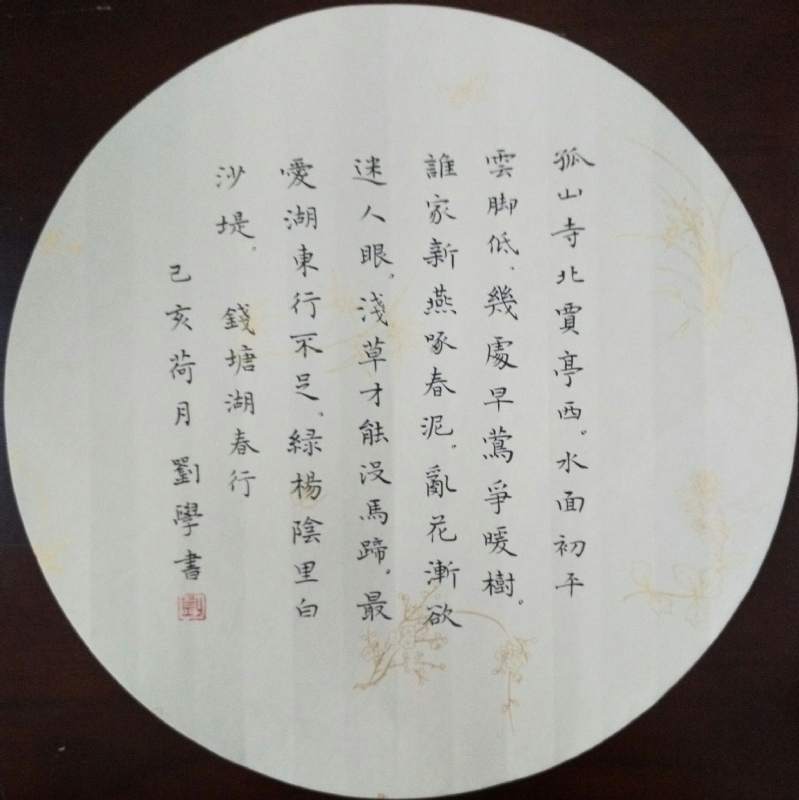 孤山寺北賈亭西。水面初平
雲脚低、幾處早鶯爭暖樹。
誰家新燕啄春泥。亂花漸欲
迷人眼。淺草才能没馬蹄。最
愛湖東行不足、緑楊陰里白
沙堤。 錢塘湖春行
己亥荷月劉學書